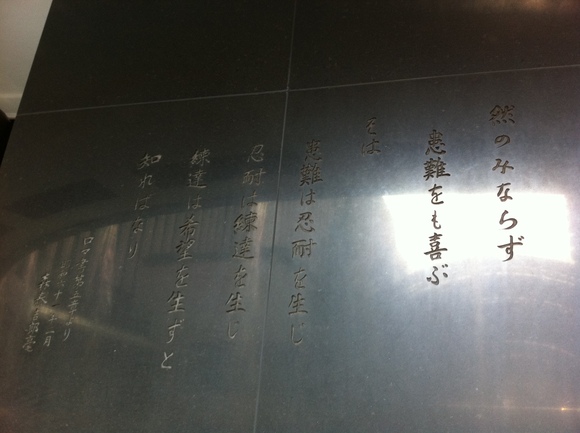 然のみならず
患難をも喜ぶ
そは
患難は忍耐を生じ
忍耐は練達を生じ
練達は希望を生ずと
知ればなり
ロマ書第五章より